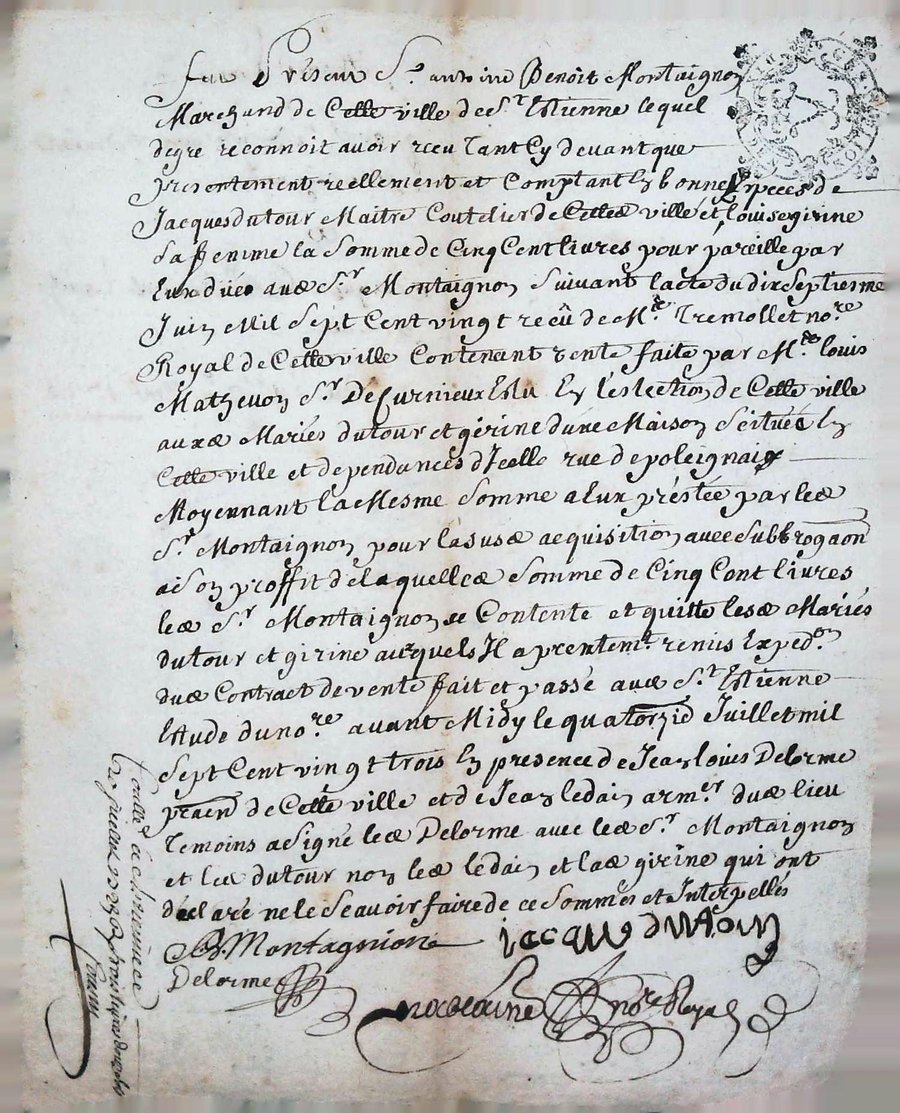 fut Présent Sr. antoine Benoit Montaignon
Marchand de Cette ville de St Etienne lequel
degre reconnoit avoir receu Tant Cy devant que
presentement reellement et Comptant En bonne Especes de
Jacques dutour Maitre Coutelier de Cette ville et Louise girine
Sa femme la Somme de Cinq Cent livres pour pareille par
Eux duëe aud Sr. Montaignon Suivant lacte du dix Septiesme
Juin Mil Sept Cent vingt recû de Me. Tremollet nore
Royal de Cette ville Contenant vente faite par Mre. Louis
Mathevon Sr. De Curnieux Eslu En l'eslection de Cette ville
auxd Mariés dutour et girine dune Maison Scituée En
Cette ville et dependances d'Jcelle rue de poleignaix
Moyennant la Mesme Somme a Eux préstée par led
Sr. Montaignon pour lasusd acquisition avec Subbrogaon
a Son proffit de laquelled Somme de Cinq Cent livres
led Sr. Montaignon se Contente et quitte lesd Mariés
dutour et girine auxquels Jl a prentemt. remis Expedon.
dud Contract de vente fait et passé aud St. Etienne
Etude du nore. avant Midy le quatorzie Juillet mil
Sept Cent vingt trois En presence de Jean Louis Delorme
praen de Cette ville et de Jean ledain armer dud lieu
Temoins a Signé led Delorme avec led Sr. Montaignon
et led dutour non led ledain et lad girine qui ont
déclaré ne le Scavoir faire de ce Sommés et Interpellés
B. Montagnion
jacque dutour
Delorme
nore Royal